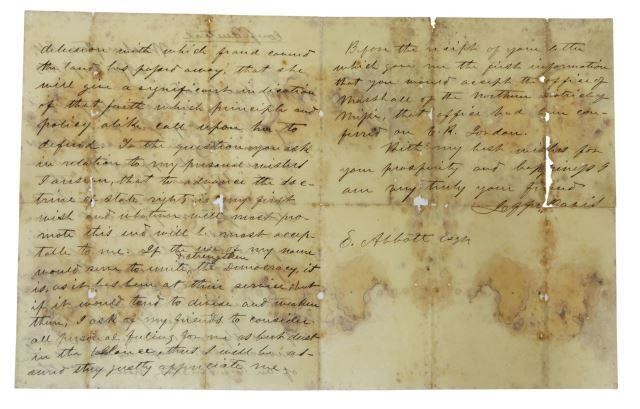 delusion with which fraud covered
the land, has passed away; that she
will give a significant indication
of that faith which principle and
policy alike call upon her to
defend. To the question you ask
in relation to my personal wishes
I answer, that to advance the doc-
trine of state rights is my first
wish and whatever will most pro-
mote this end will be most accep-
table to me. If the use of my name
would serve to unite, & strengthen the Democracy, it
is, as it has been at their service, but
if it would tend to divide and weaken
them, I ask of my friends to consider
all personal feeling for me as but dust
in the balance, thus I will be as-
sured they justly appreciate me.
Before the receipt of your letter
which gave me the first information
that you would accept the office of
Marshall of the Northern District of
Missi, that office had been con-
ferred on
With my best wishes for
your prosperity and happiness I
am very truly your friend
Jeff. Davis
E. Abbott esqr